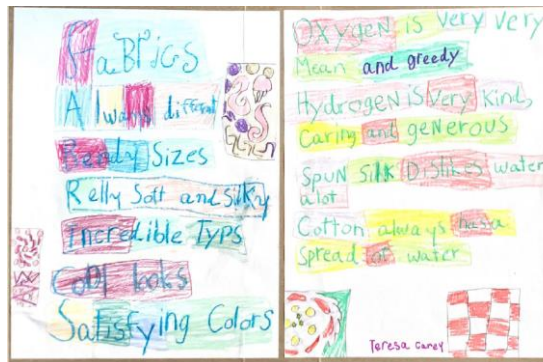 FaBrics
Always different
Bendy Sizes
Relly Soft and Silky
Incredible Typs
Cool looks
Satisfying Colors
OxygeN is very very
Mean and greedy
HydrogeN iS Very Kind,
Caring and geNerous
SpuN Silk DisLikes water
alot
Cotton always has a
Spread of water
Teresa Carey